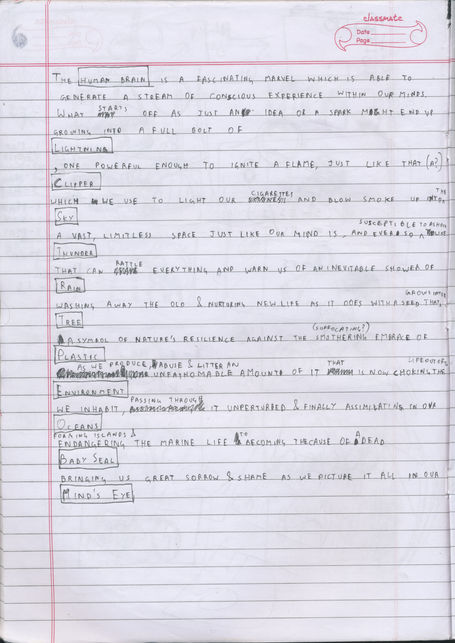 classmate
Date
Page
THE HUMAN BRAIN IS A FASCINATING MARVEL WHICH IS ABLE TO
GENERATE A STREAM OF CONSCIOUS EXPERIENCE WITHIN OUR MINDS.
STARTS
WHAT OFF AS JUST AN IDEA OR A SPARK MIGHT END UP
GROWING INTO A FULL BOLT OF
LIGHTNING
, ONE POWERFUL ENOUGH TO IGNITE A FLAME, JUST LIKE THAT (A?)
CLIPPER
CIGARETTES THE
WHICH WE USE TO LIGHT OUR AND BLOW SMOKE UP INTO
SKY
SUSCEPTIBLE TO
A VAST, LIMITLESS SPACE JUST LIKE OUR MIND IS, AND EVER SO
THUNDER
RATTLE
THAT CAN EVERYTHING AND WARN US OF AN INEVITABLE SHOWER OF
RAIN
GROWS INTO
WASHING AWAY THE OLD & NURTURING NEW LIFE AS IT DOES WITH A SEED THAT
TREE
(SUFFOCATING?)
A SYMBOL OF NATURE'S RESILIENCE AGAINST THE SMOTHERING EMBRACE OF
PLASTIC
AS WE PRODUCE, ABUSE & LITTER AN THAT LIFE OUT OF
UNFATHOMABLE AMOUNT OF IT IS NOW CHOKING THE
ENVIRONMENT
PASSING THROUGH
WE INHABIT, IT UNPERTURBED & FINALLY ASSIMILATING IN OUR
OCEANS
FORMING ISLANDS &
ENDANGERING THE MARINE LIFE TO BECOMING THE CAUSE OF A DEAD
BABY SEAL
BRINGING US GREAT SORROW & SHAME AS WE PICTURE IT ALL IN OUR
MIND'S EYE